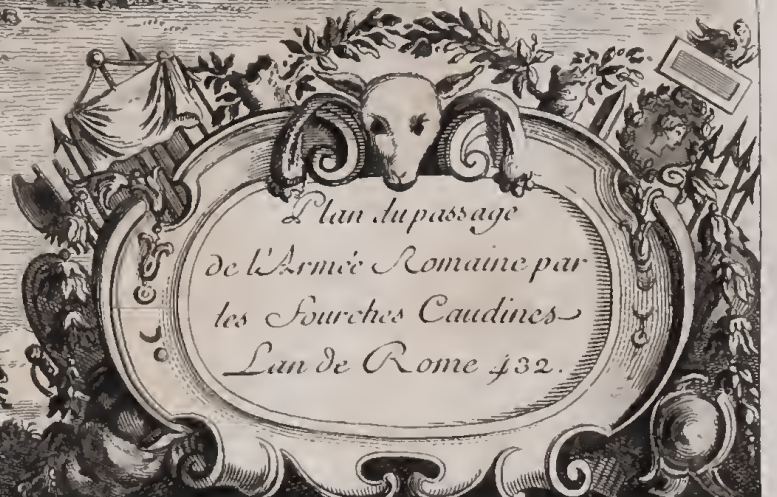 Plan du passage
de l'Armée Romaine par
les Fourches Caudines
Lan de Rome 432.